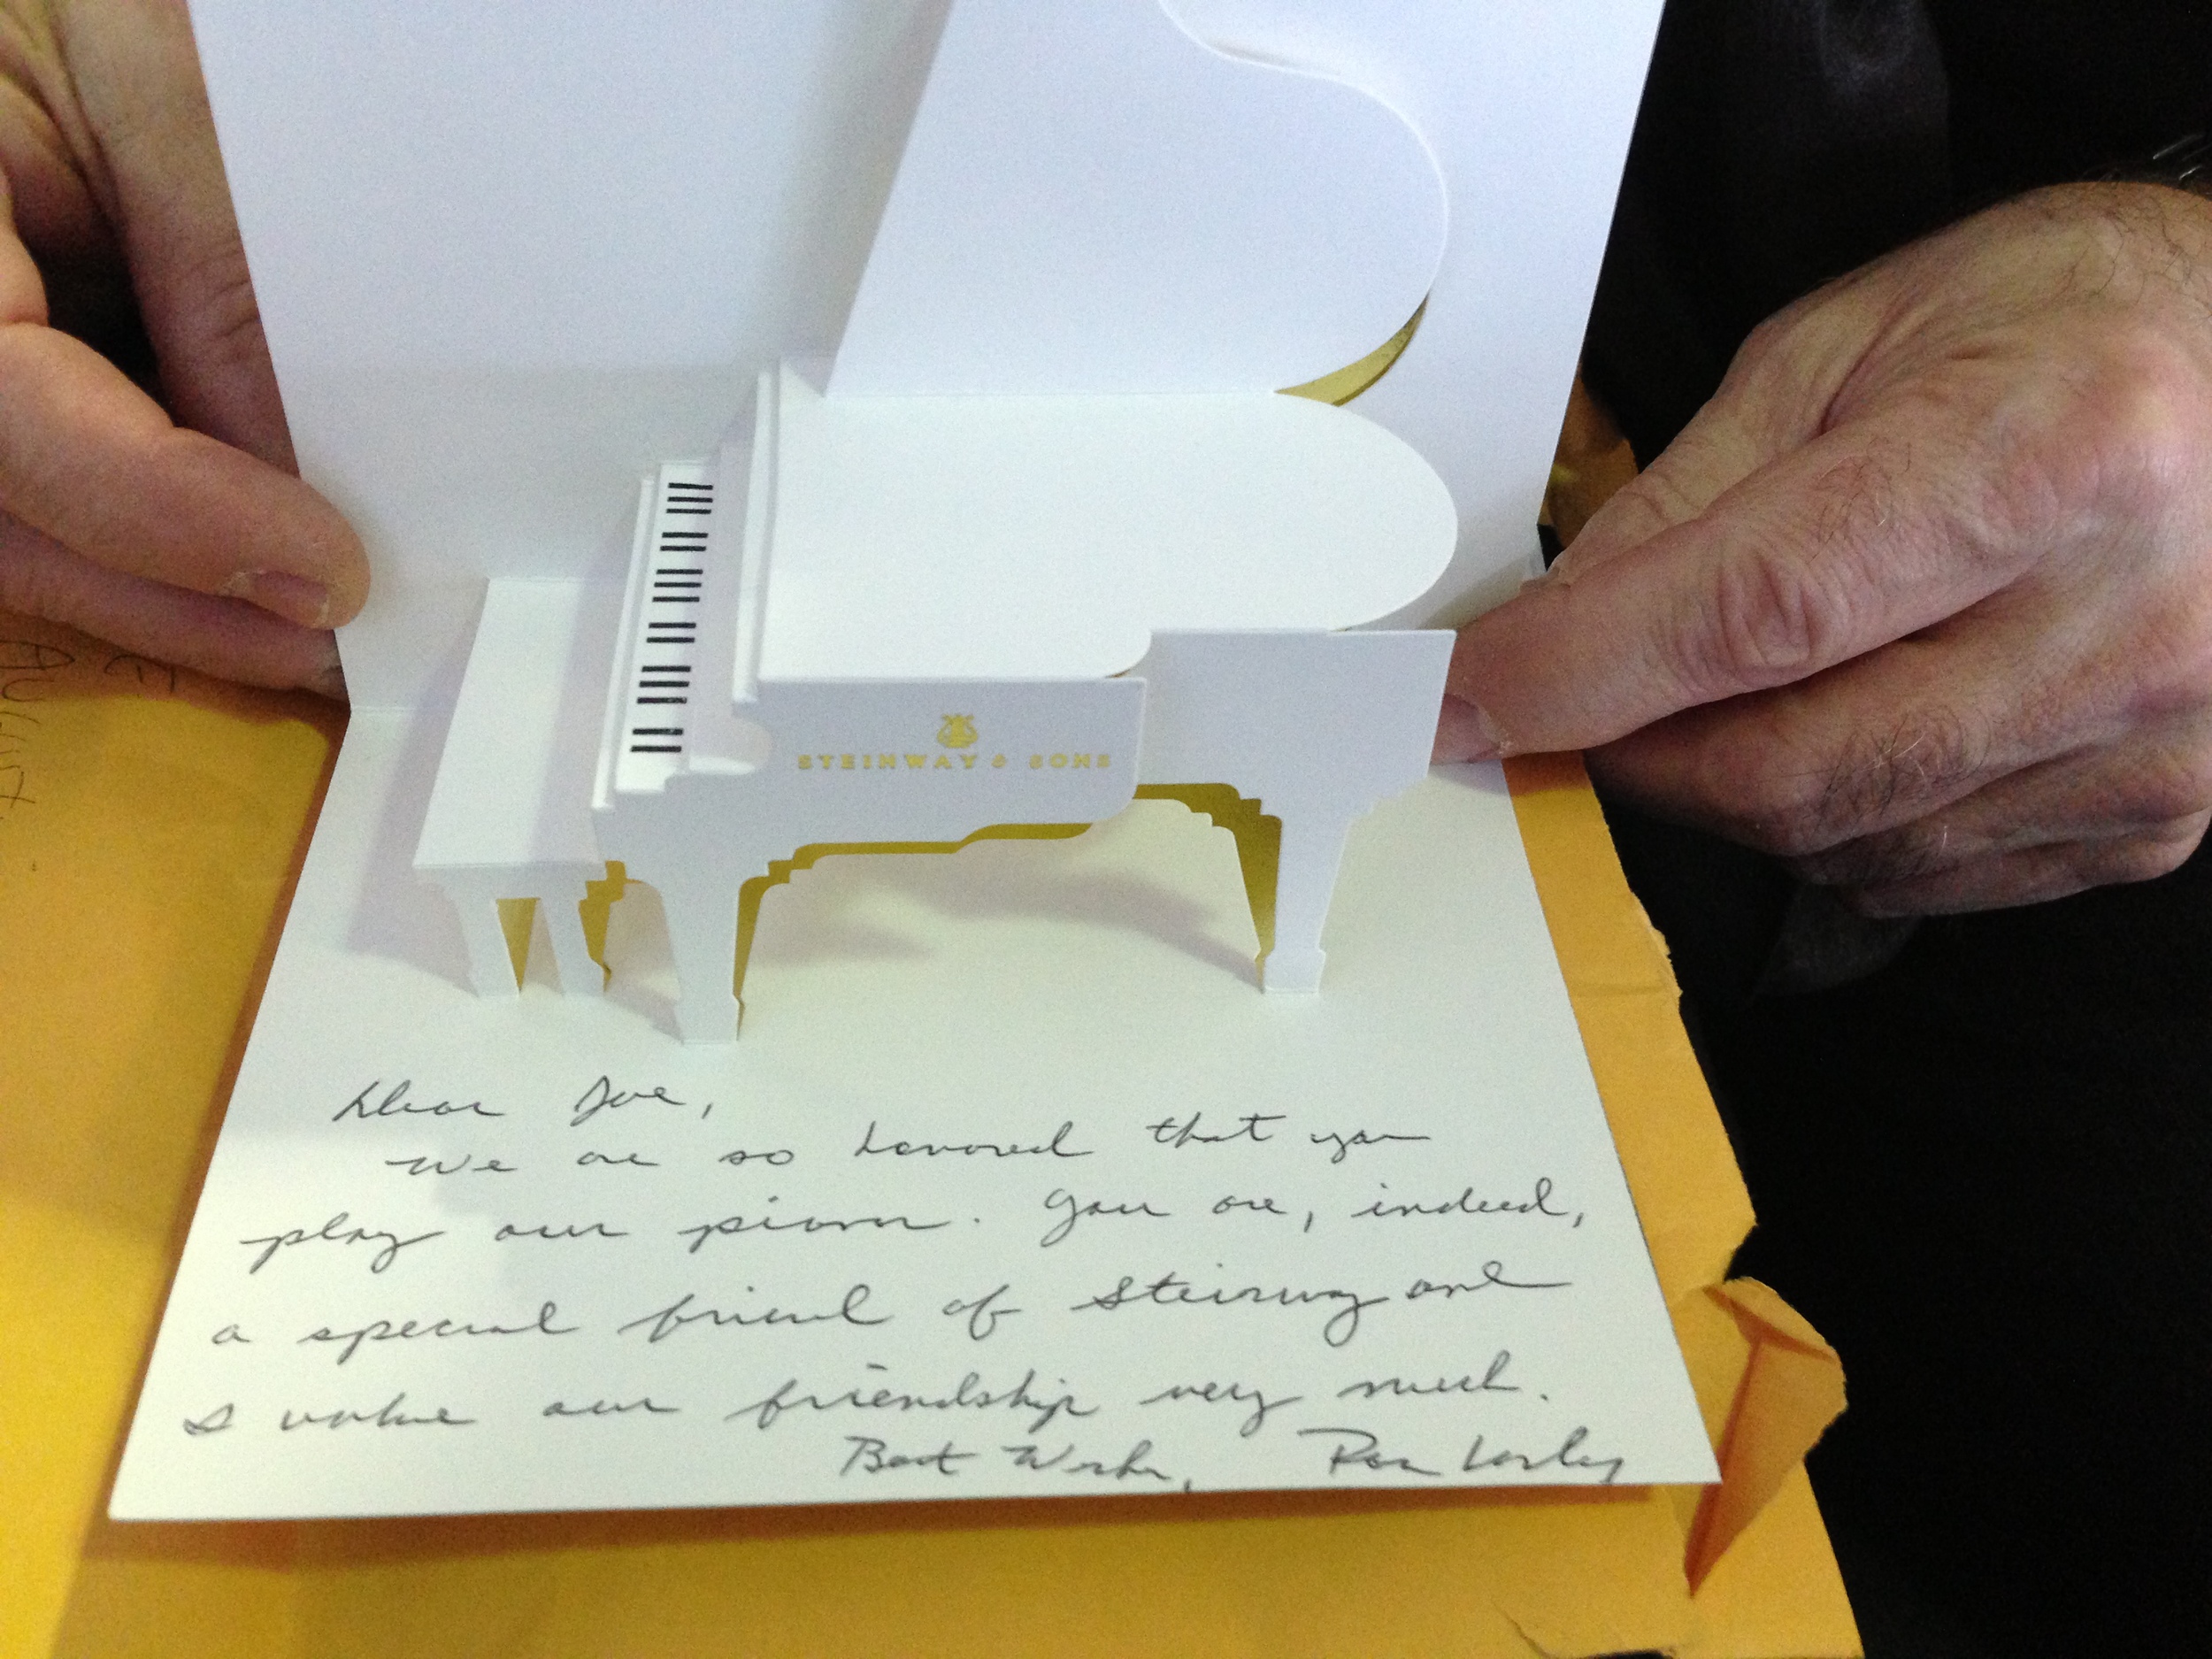 STEINWAY & SONS
Dear Joe,
We are so honored that you
play our piano. You are, indeed,
a special friend of Steinway and
I value our friendship very much.
Best Wishes, Ron Losby